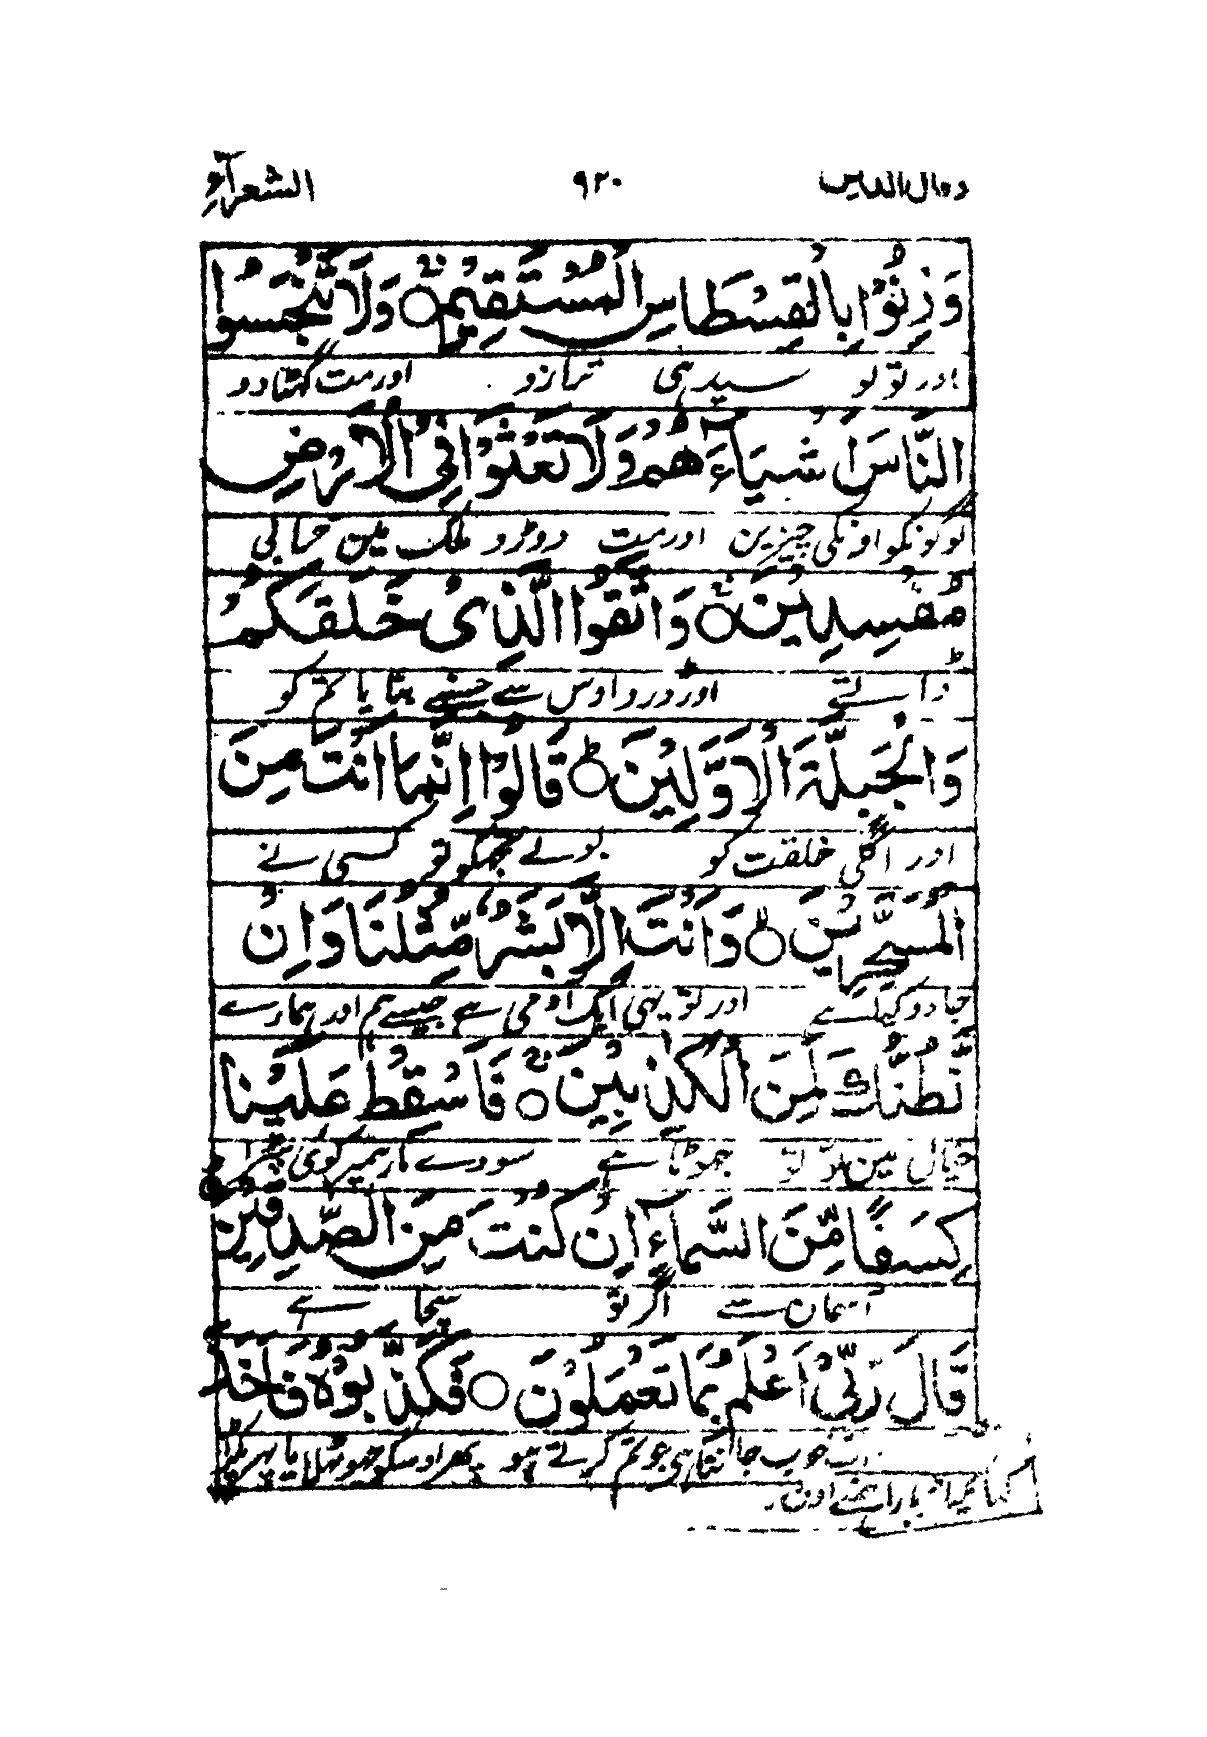 وقال الذین ٩٢٠ الشعرآء
وَزِنُوْا بِالْقِسْطَاسِ الْمُسْتَقِيْمِ ○ وَلَا تَبْخَسُوا
اور تولو سیدہی ترازو اور مت گھٹا دو
النَّاسَ اَشْيَآءَهُمْ وَلَا تَعْثَوْا فِى الْاَرْضِ
لوگونکو اونکی چیزین اور مت دوڑو ملک مین خرابی
مُفْسِدِيْنَ ○ وَاتَّقُوا الَّذِىْ خَلَقَكُمْ
ڈالتے اور ڈرو اوس سے جسنے بنایا تم کو
وَالْجِبِلَّةَ الْاَوَّلِيْنَ ○ قَالُوْا اِنَّمَا اَنْتَ مِنَ
اور اگلی خلقت کو بولے تجھکو تو کسی نے
الْمُسَحَّرِيْنَ ○ وَاَنْتَ اِلَّا بَشَرٌ مِّثْلُنَا وَاِنْ
جادو کیا ہے اور تو یہی ایک آدمی ہے جیسے ہم اور ہمارے
نَّظُنُّكَ لَمِنَ الْكٰذِبِيْنَ ○ فَاَسْقِطْ عَلَيْنَا
خیال مین تو تو جھوٹا ہے سو دے مار ہمپر کوئی
كِسَفًا مِّنَ السَّمَآءِ اِنْ كُنْتَ مِنَ الصّٰدِقِيْنَ
آسمان سے اگر تو سچا ہے
قَالَ رَبِّىْ اَعْلَمُ بِمَا تَعْمَلُوْنَ ○ فَكَذَّبُوْهُ فَاَخَذَ
خوب جانتا ہی جو تم کرتے ہو پھر اوسکو جھوٹھلایا پھر